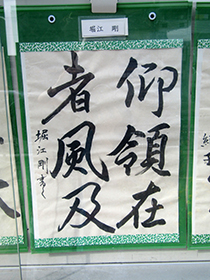 堀江 剛
仰領在
者風及
堀江剛書